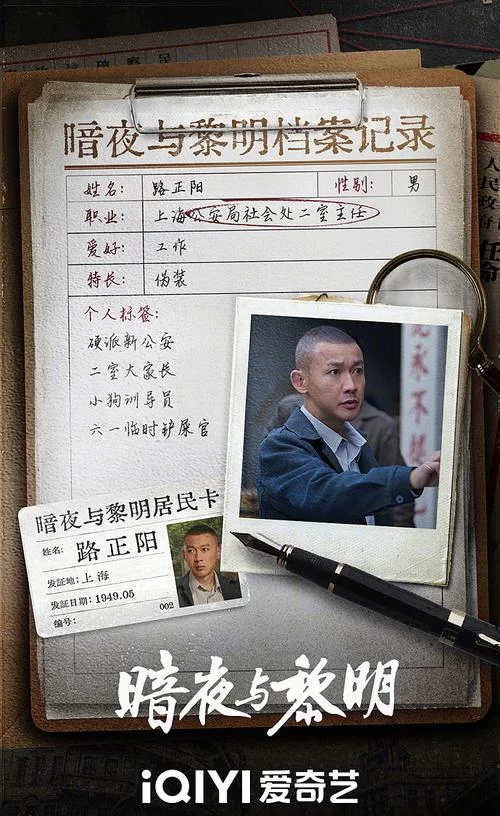 暗夜与黎明档案记录
姓名: 路正阳 性别: 男
职业: 上海公安局社会处二室主任
爱好: 工作
特长: 伪装
个人标签:
硬派新公安
二室大家长
小狗训导员
六一临时铲屎官
暗夜与黎明居民卡
姓名: 路正阳
发证地: 上海
发证日期: 1949.05
编号: 002
暗夜与黎明
iQIYI 爱奇艺